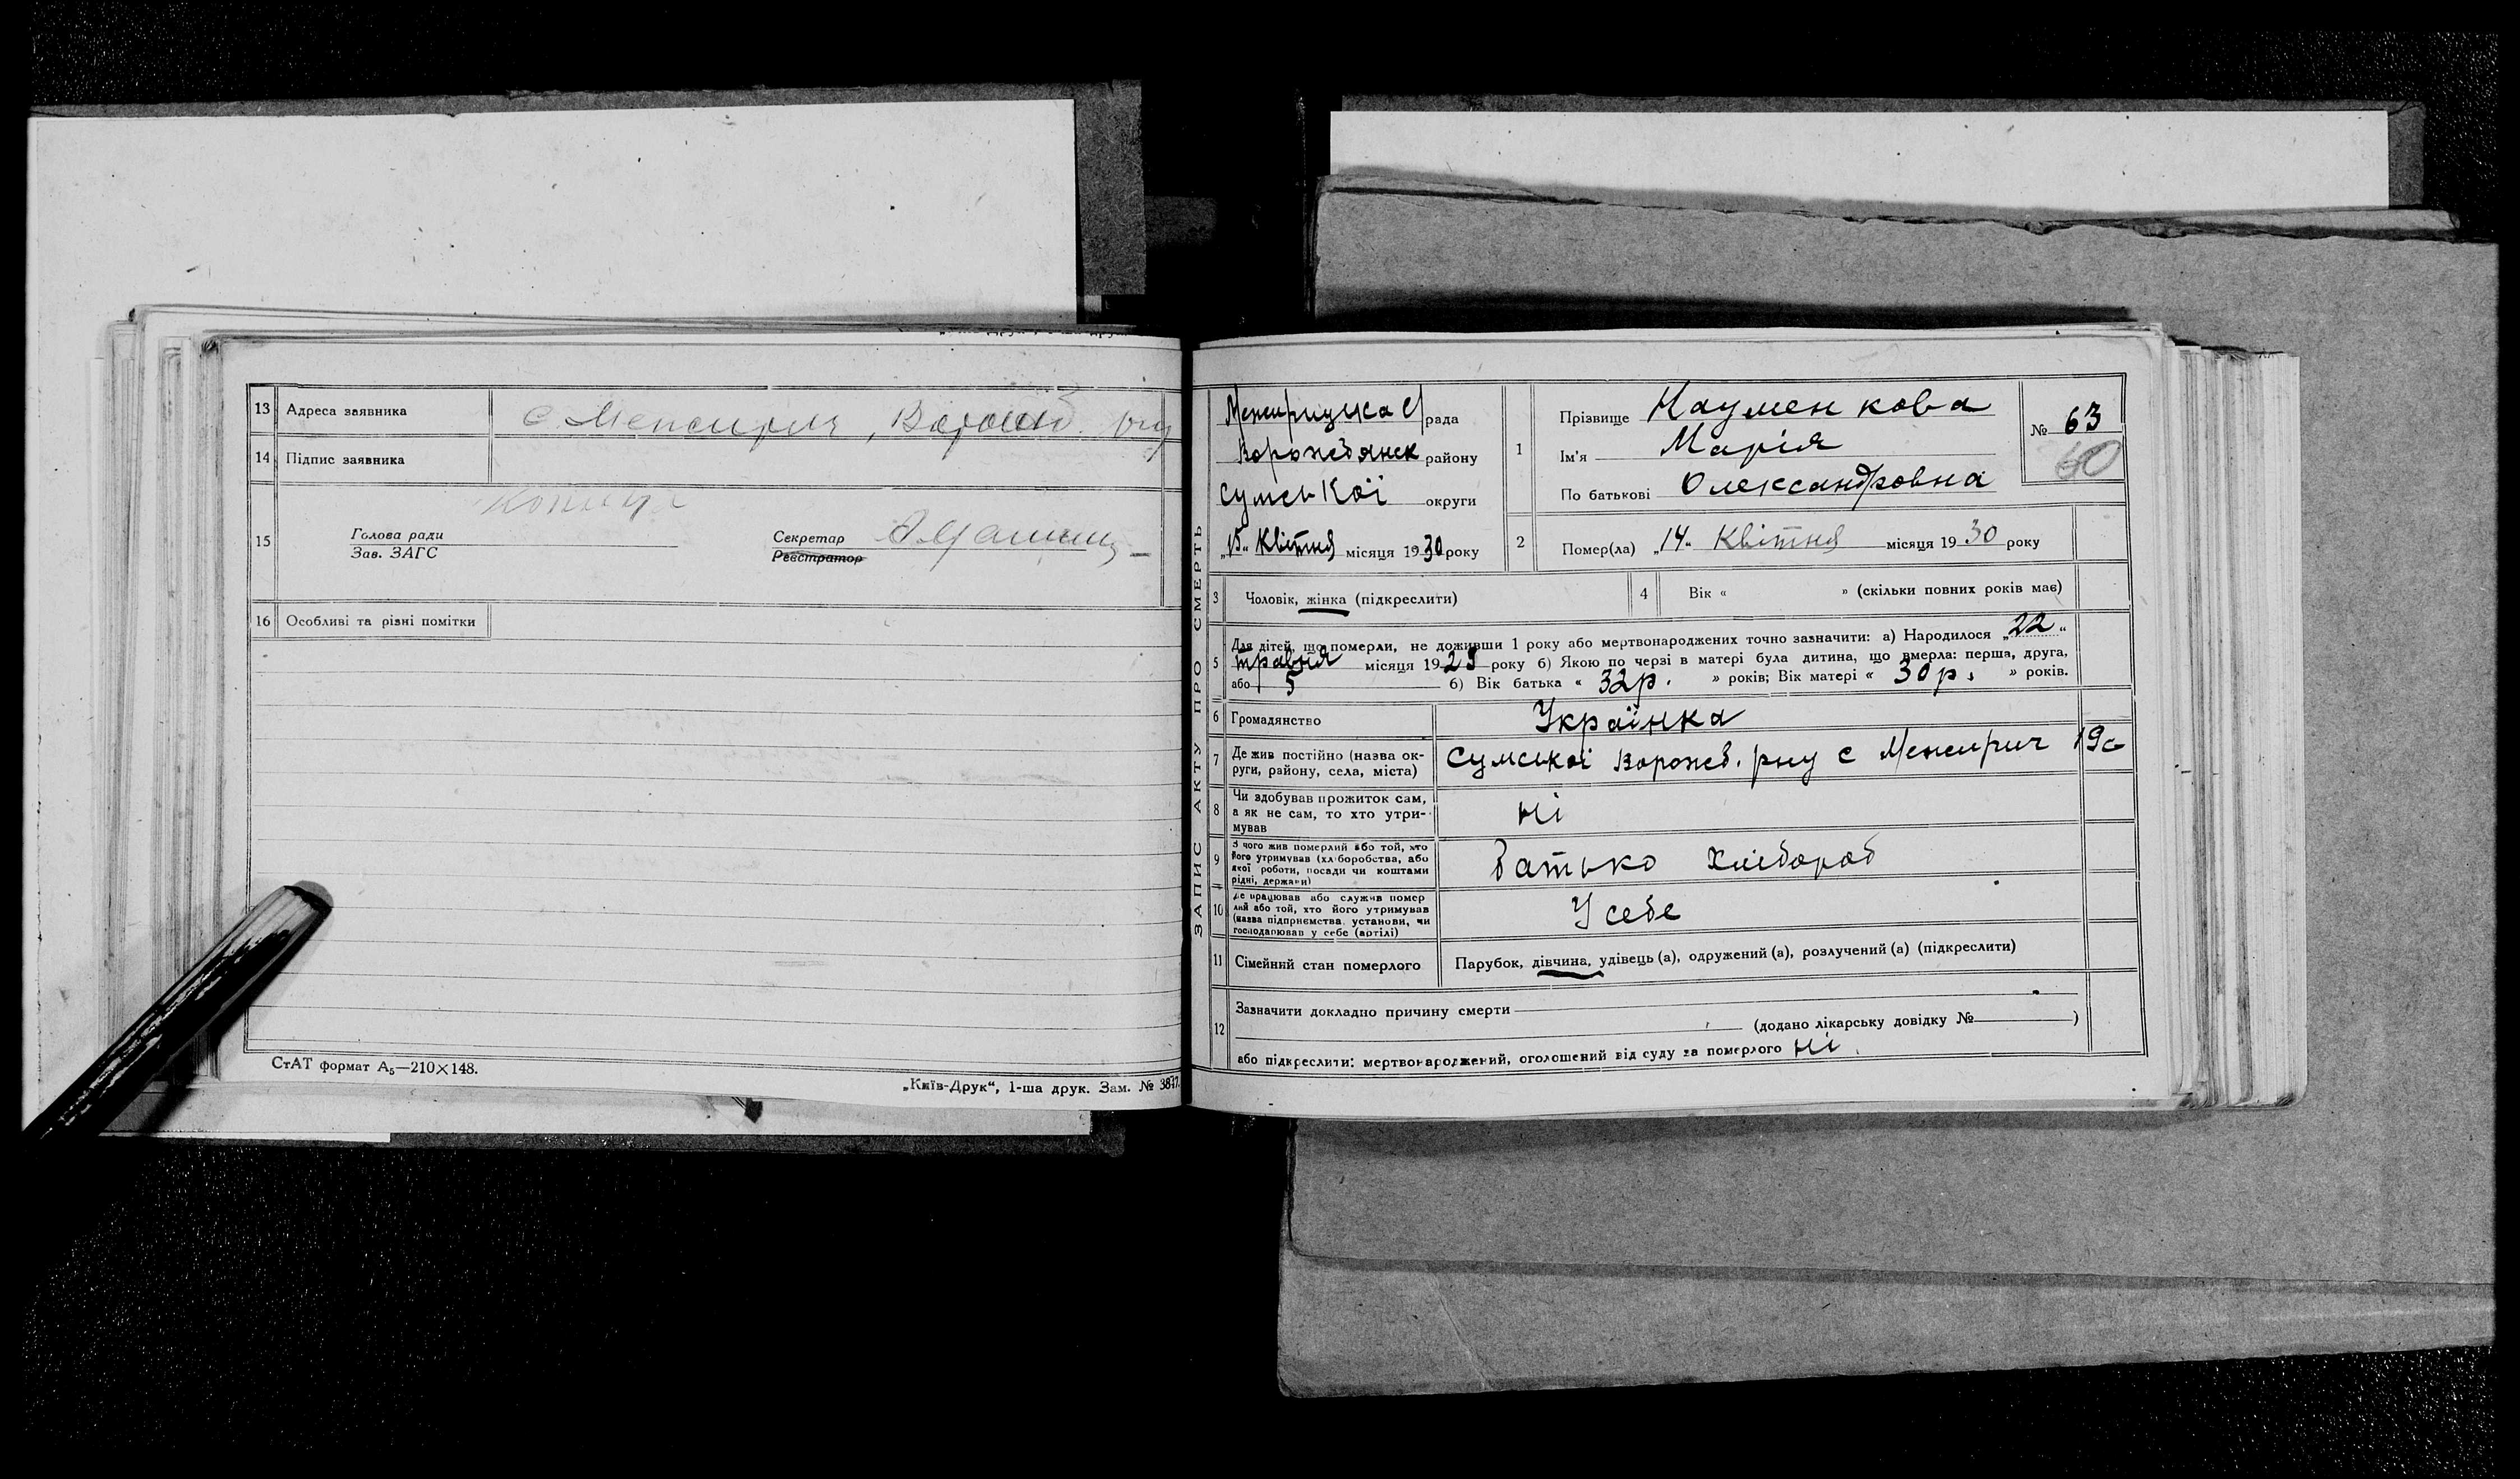 13 Адреса заявника с. Менжирич, Ворожб. р-ну
14 Підпис заявника
15 Голова ради
Зав. ЗАГС
Секретар
Реєстратор
16 Особливі та різні помітки
СтАТ формат А₅—210×148.
„Київ-Друк“, 1-ша друк. Зам. № 3877.
ЗАПИС АКТУ ПРО СМЕРТЬ
Менжирицька С/рада
Ворожбянск району
Сумської округи
„15“ Квітня місяця 1930 року
1 Прізвище Науменкова
Ім'я Марія
По батькові Олександровна
№ 63
60
2 Помер(ла) „14“ Квітня місяця 1930 року
3 Чоловік, жінка (підкреслити)
4 Вік « » (скільки повних років має)
5 Для дітей, що померли, не доживши 1 року або мертвонароджених точно зазначити: а) Народилося „22“
травня місяця 1929 року б) Якою по черзі в матері була дитина, що вмерла: перша, друга,
або 5 б) Вік батька « 32р. » років; Вік матері « 30р. » років.
6 Громадянство Українка
7 Де жив постійно (назва ок-
руги, району, села, міста) Сумської Ворожб. рну с Менжирич 19с
8 Чи здобував прожиток сам,
а як не сам, то хто утри-
мував ні
9 З чого жив померлий або той, хто
його утримував (хліборобства, або
якої роботи, посади чи коштами
рідні, держави) батько хлібороб
10 Де працював або служив помер
лий або той, хто його утримував
(назва підприємства, установи, чи
господарював у себе (артілі) У себе
11 Сімейний стан померлого Парубок, дівчина, удівець (а), одружений (а), розлучений (а) (підкреслити)
12 Зазначити докладно причину смерти
(додано лікарську довідку № )
або підкреслити: мертвонароджений, оголошений від суду за померлого ні